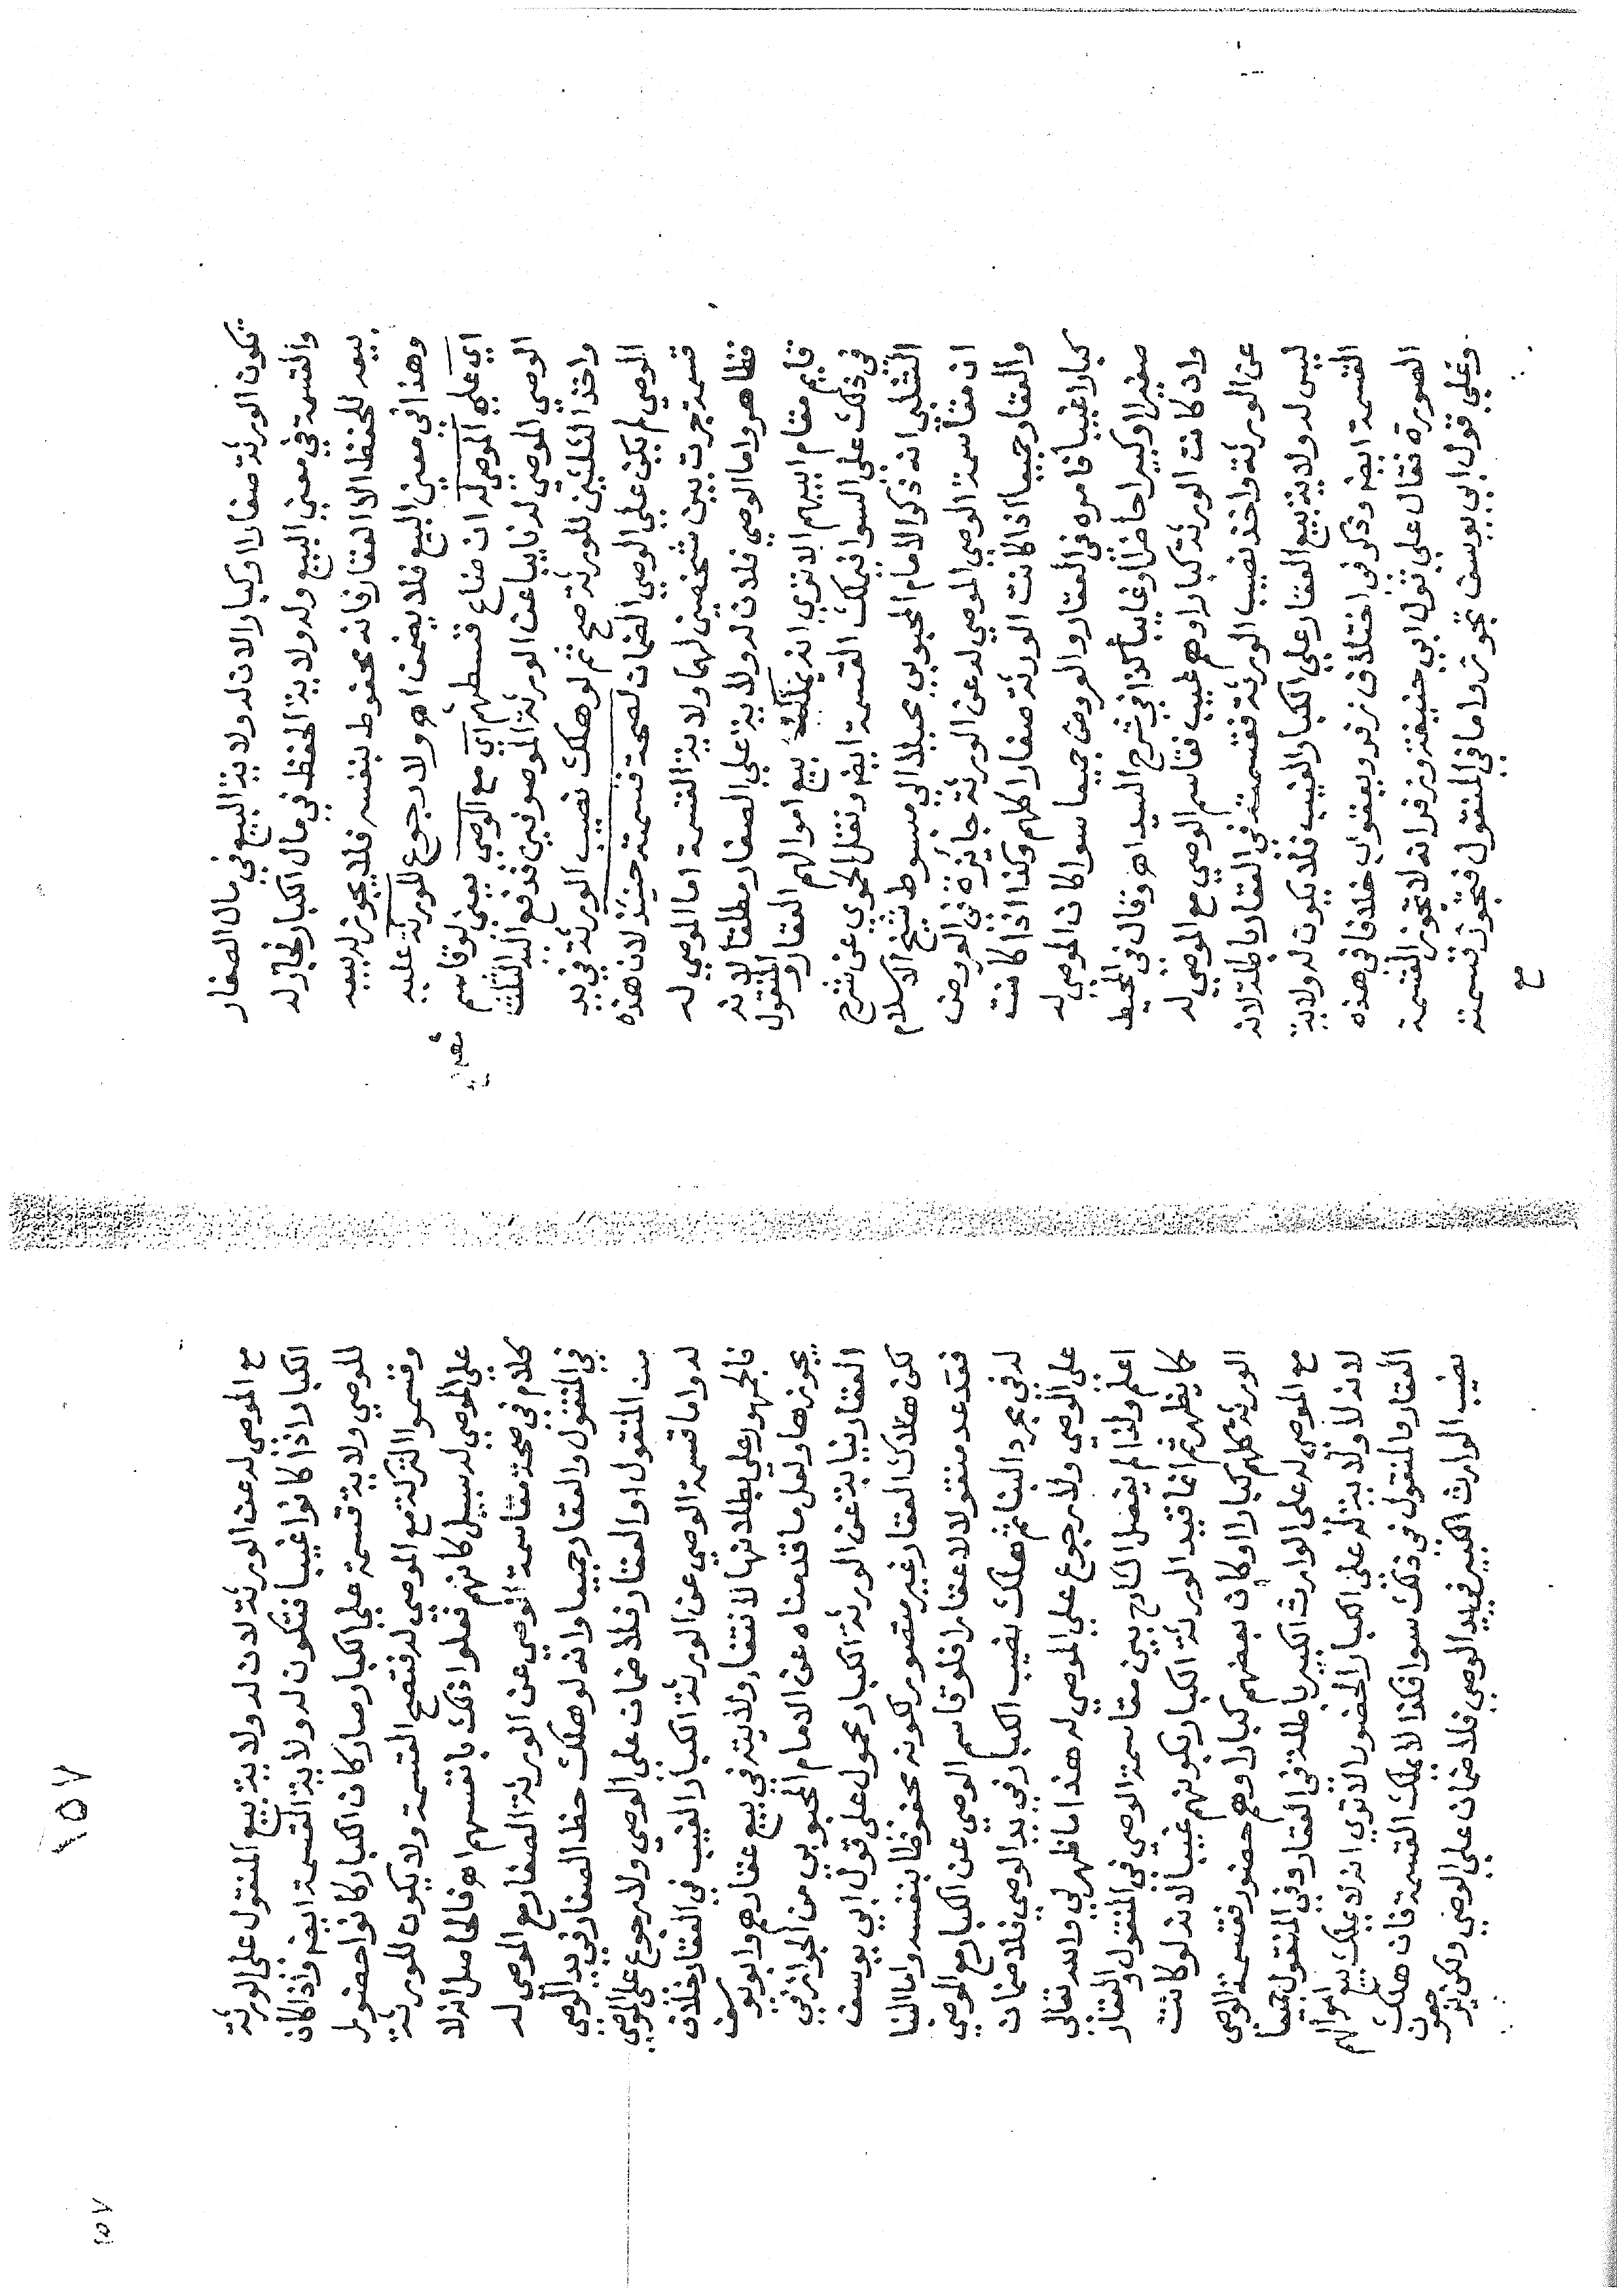 تكون الورثة صغارا وكبارا لان له ولاية البيع في مال الصغار
والقسمة في معني البيع وله ولاية الحفظ في مال الكبار فجاز له
بيعه للحفظ الا العقار فانه محفوظ بنفسه فلا يجوز له بيعه
وهذا في معني البيع فلا يضمن اهـ ولا رجوع للورثة عليه
اي علي الموصي له ان ضاع قسطهم اي مع الوصي يعني لو قاسم
الوصي الموصي له نايبا عن الورثة الموصوفين فدفع اليه الثلث
واخذ الثلثين للورثة صح ثم لو هلك نصيب الورثة في يد
الوصي لم يكن علي الوصي الضمان لصحة قسمته حينئذ لان هذه
قسمة جرت بين شخصين لهما ولاية القسمة اما الموصي له
فظاهر واما الوصي فلان له ولاية علي الصغار مطلقا لانه
قايم مقام ابيهم الا تري انه يملك بيع اموالهم العقار والمنقول
في ذلك علي السوا فيملك القسمة ايضا ونقل الحموي عن شرح
الشلبي انه ذكر الامام المحبوبي محيلا الي مبسوط شيخ الاسلام
ان مقاسمة الوصي الموصي له عن الورثة جايزة في العروض
والعقار جميعا اذا كانت الورثة صغارا كلهم وكذا اذا كانت
كبارا غيبا فامره في العقار والعروض جميعا سوا كان الموصي له
صغيرا او كبيرا حاضرا او غايبا كذا في شرح السيد اهـ وقال في المحيط
وان كانت الورثة كبارا وهم غيب فقاسم الوصي مع الموصي له
عن الورثة واخذ نصيب الورثة فقسمته في العقار باطلة لانه
ليس له ولاية بيع العقار علي الكبار الغيب فلا يكون له ولاية
القسمة ايضا وذكر في اختلاف زفر ويعقوب خلافا في هذه
الصورة فقال علي قول ابي حنيفة وزفر انه لا تجوز القسمة
وعلي قول ابي يوسف تجوز واما في المنقول فتجوز قسمته
مع
مع الموصي له عن الورثة لان له ولاية بيع المنقول علي الورثة
الكبار اذا كانوا غيبا فتكون له ولاية القسمة ايضا واذا كان
للوصي ولاية قسمة علي الكبار صار كان الكبار كانوا حضورا
وقسموا التركة مع الموصي له فتصح القسمة ولا يكون للورثة
علي الموصي له سبيل كانهم فعلوا ذلك بانفسهم اهـ فالحاصل انه لا
كلام في صحة مقاسمة الوصي عن الورثة الصغار مع الموصي له
في المنقول والعقار جميعا وانه لو هلك حظ الصغار في يد الوصي
من المنقول او العقار فلا ضمان علي الوصي ولا رجوع علي الموصي
له واما قسمة الوصي عن الورثة الكبار الغيب في العقار خلاف
فالجمهور علي بطلانها لانتفاء ولايته في بيع عقارهم وابو يوسف
يجوزها ولعل ما قدمناه عن الامام المحبوبي من الجواز في
العقار نيابة عن الورثة الكبار محمول علي قول ابي يوسف
لكن هلاك العقار غير متصور لكونه محفوظا بنفسه واما البنا
فقد عد منقولا لا عقارا فلو قاسم الوصي عن الكبار مع الموصي
له في مجرد البنا ثم هلك نصيب الكبار في يد الوصي فلا ضمان
علي الوصي ولا رجوع علي الموصي له هذا ما ظهر لي والله تعالي
اعلم ولذا لم يفصل الشارح بين مقاسمة الوصي في المنقول والعقار
كما يظهر ثم انما قيد الورثة الكبار بكونهم غيبا لانه لو كانت
الورثة كلهم كبارا او كان بعضهم كبارا وهم حضور فقسمة الوصي
مع الموصي له علي الوارث الكبير باطلة في العقار وفي المنقول جميعا
لانه لا ولاية له علي الكبار الحضور الا تري انه لا يملك بيع اموالهم
العقار والمنقول في ذلك سوا فكذا لا يملك القسمة فان هلك
نصيب الوارث الكبير في يد الوصي فلا ضمان علي الوصي ولكن يرجعون
١٥٧
١٥٧